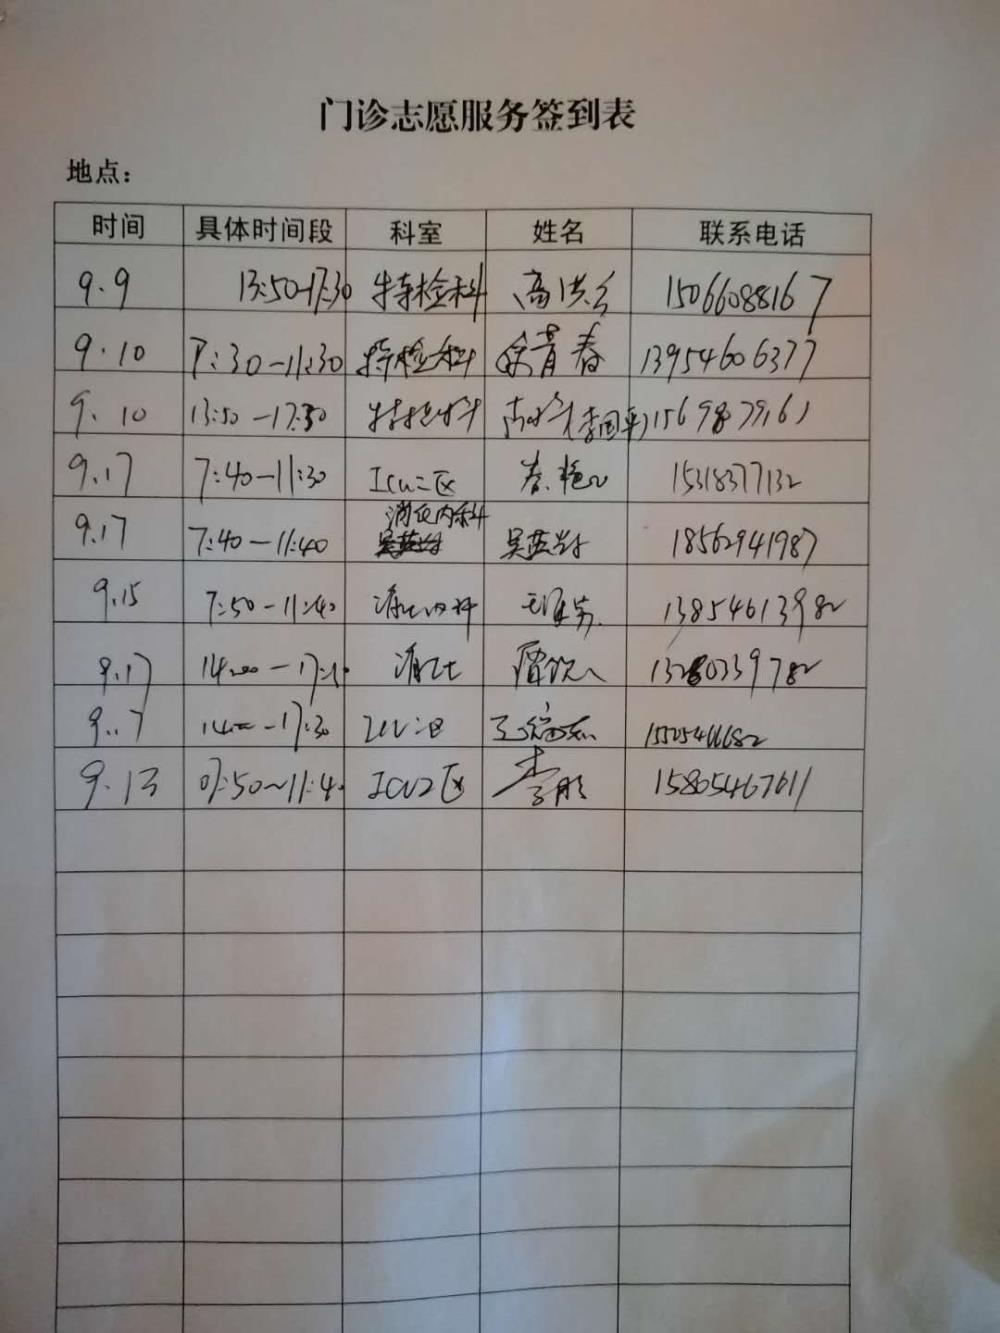 门诊志愿服务签到表
地点：
时间 具体时间段 科室 姓名 联系电话
9.9 13:50-17:30 特检科 高洪 15066088167
9.10 7:30-11:30 特检科 徐青春 13954606377
9.10 13:50-17:30 特检科 (李国平) 1569879161
9.17 7:40-11:30 Icu二区 秦艳 15318377132
消化内科
9.17 7:40-11:40 吴燕 18562941987
9.15 7:50-11:40 消化内科 13854613982
9.17 14:00-17:30 消化
9.17 14:00-17:30 ICU二区 15505466682
9.13 07:50~11:40 ICU2区 李彤 15805467611